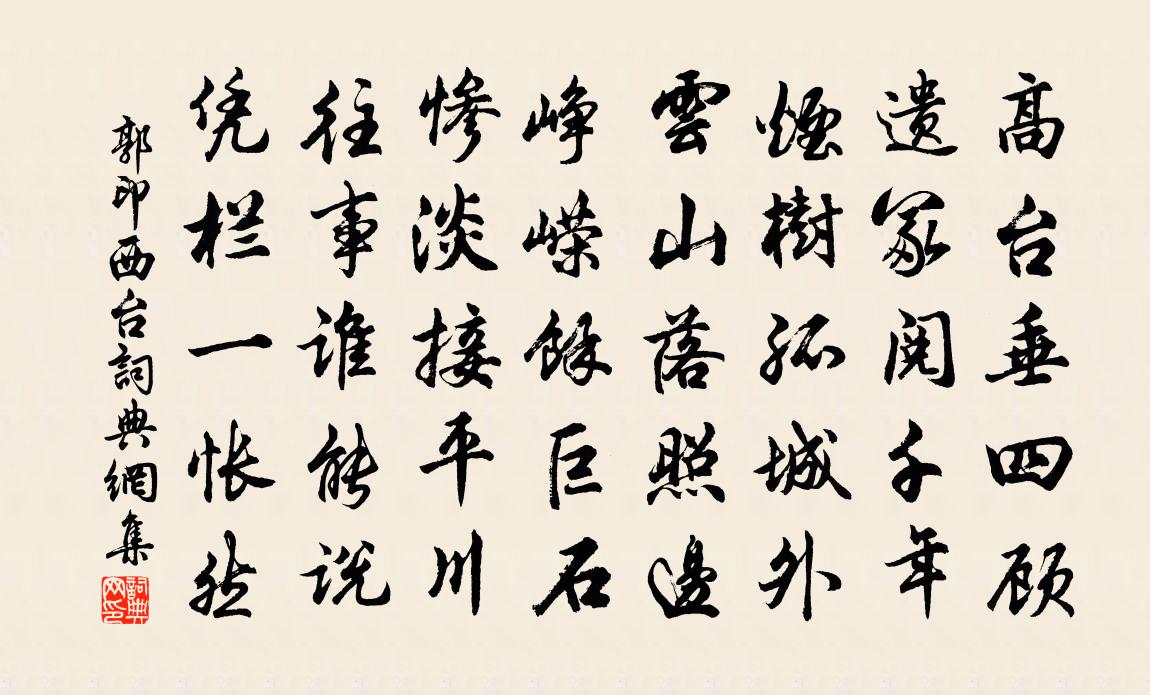 高台垂四顾
遗冢阅千年
煙樹孤城外
雲山落照邊
峥嵘餘巨石
惨淡接平川
往事谁能説
凭栏一怅然
郭印西台詞典網集
詞典网印